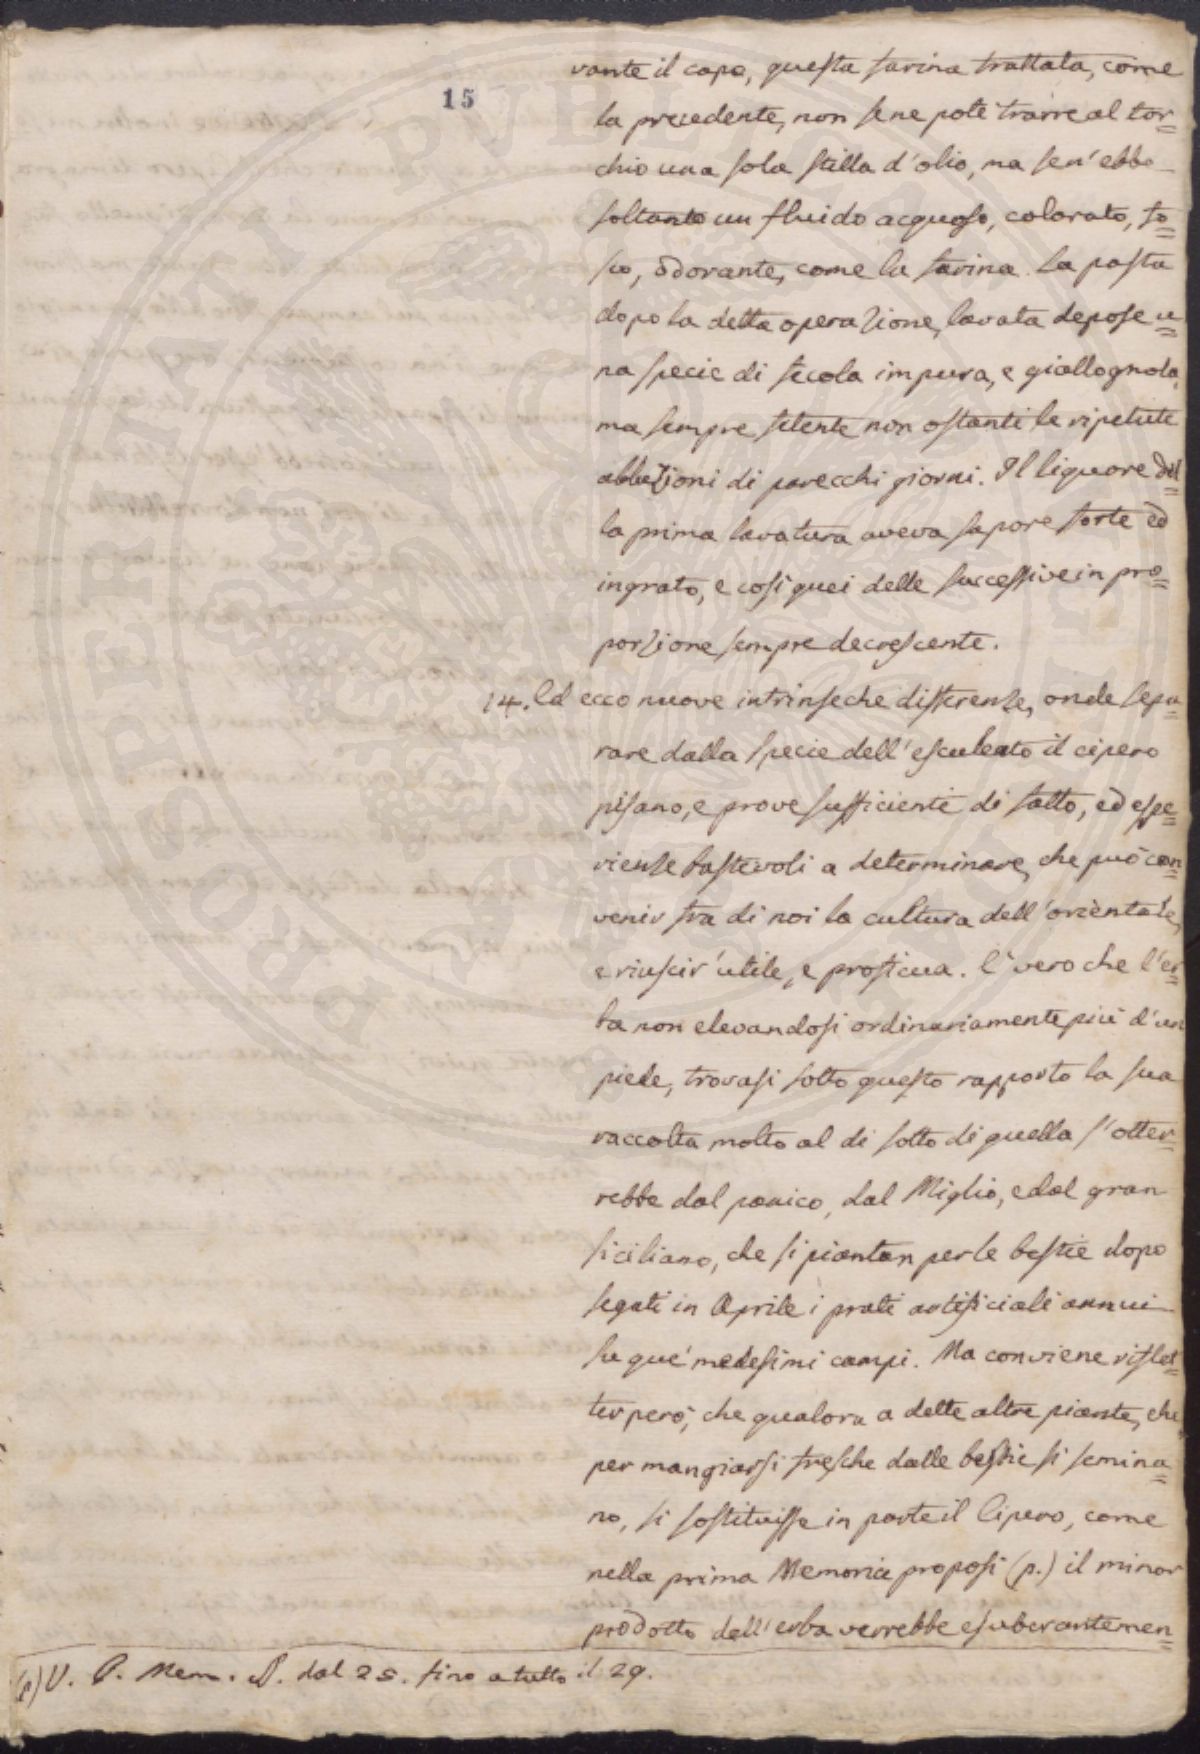 15
vante il capo, questa farina trattata, come
la precedente, non se ne potè trarre al tor=
chio una sola stilla d'olio, ma sen'ebbe
soltanto un fluido acquoso, colorato, fo=
sco, odorante, come la farina. La pasta
dopo la detta operazione, lavata depose u=
na specie di fecola impura, e giallognola,
ma sempre fetente non ostanti le ripetute
abluzioni di parecchi giorni. Il liquore del=
la prima lavatura aveva sapore forte ed
ingrato, e così quei delle successive in pro=
porzione sempre decrescente.
14. Ed ecco nuove intrinseche differenze, onde sepa=
rare dalla specie dell'esculento il cipero
pisano, e prove sufficienti di fatto, ed espe=
rienze bastevoli a determinare, che può con=
venir fra di noi la cultura dell'orientale,
e riuscir' utile, e proficua. E' vero che l'er=
ba non elevandosi ordinariamente più d'un
piede, trovasi sotto questo rapporto la sua
raccolta molto al di sotto di quella s'otter=
rebbe dal panico, dal Miglio, e dal gran
siciliano, che si piantan per le bestie dopo
segati in Aprile i prati artificiali annui
su que' medesimi campi. Ma conviene riflet=
ter però, che qualora a dette altre piante, che
per mangiarsi fresche dalle bestie si semina=
no, si sostituisse in parte il Cipero, come
nella prima Memoria proposi (p.) il minor
prodotto dell'erba verrebbe esuberantemen=
(p) V. P. Mem. §. dal 25. fino a tutto il 29.
PROSPERI PVBLICAE